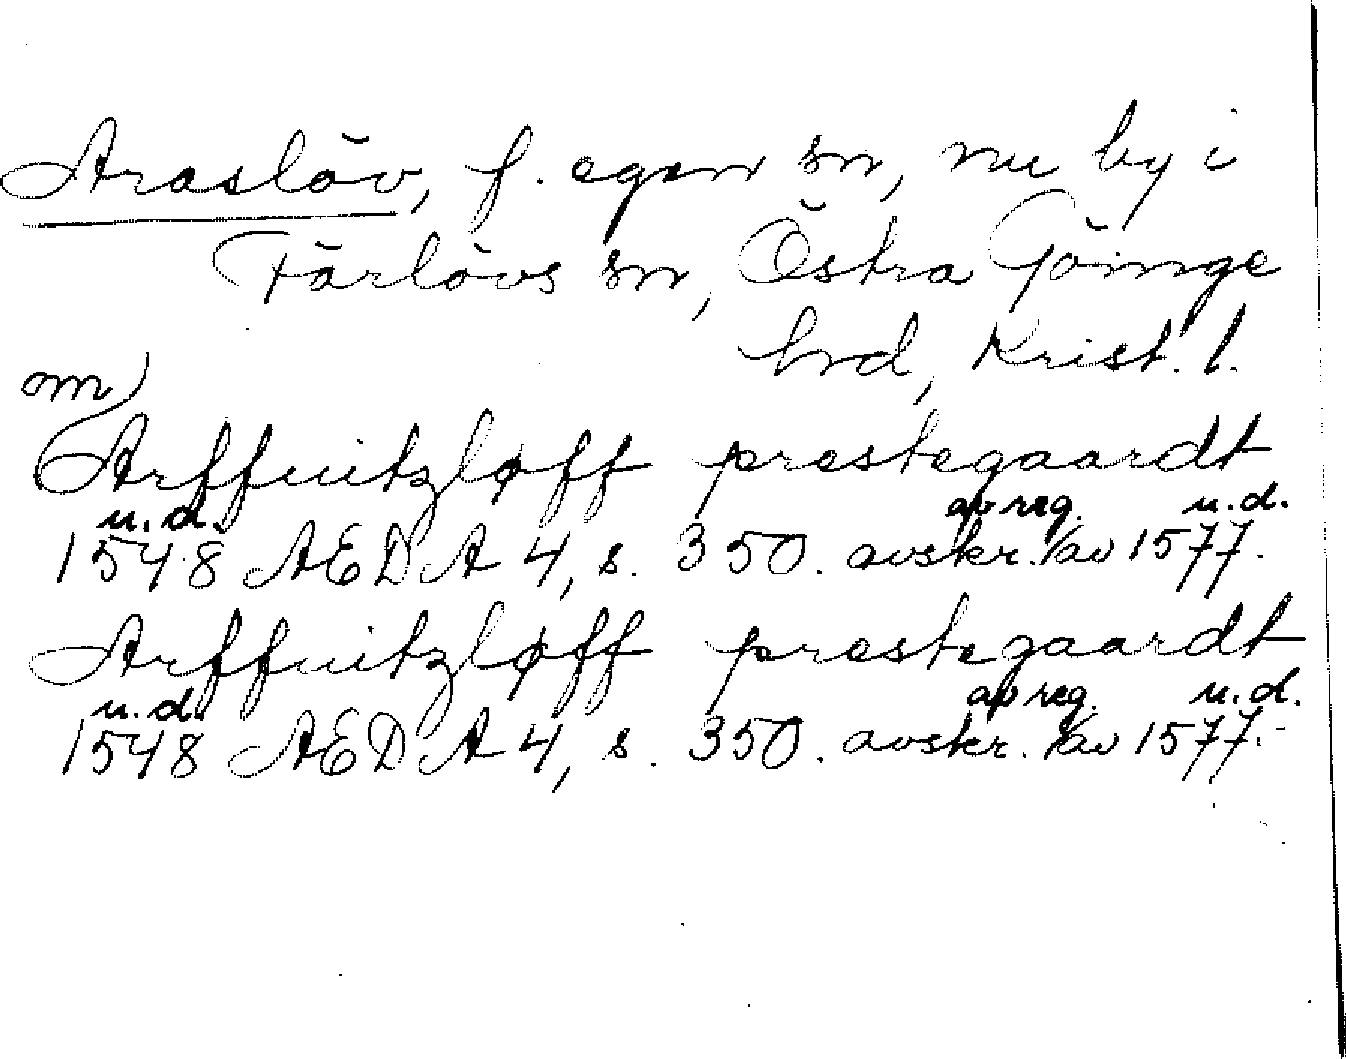 Araslöv, f. egen sn, nu by i
Färlövs sn, Östra Göinge
hrd, Krist. l.
om)
Arffuitzløff prestegaardt
u.d. av reg. u.d.
1548 AEDA 4, s. 350. avskr. /av 1577.
Arffuitzløff prestegaardt
u.d. av reg. u.d.
1548 AEDA 4, s. 350. avskr. /av 1577.